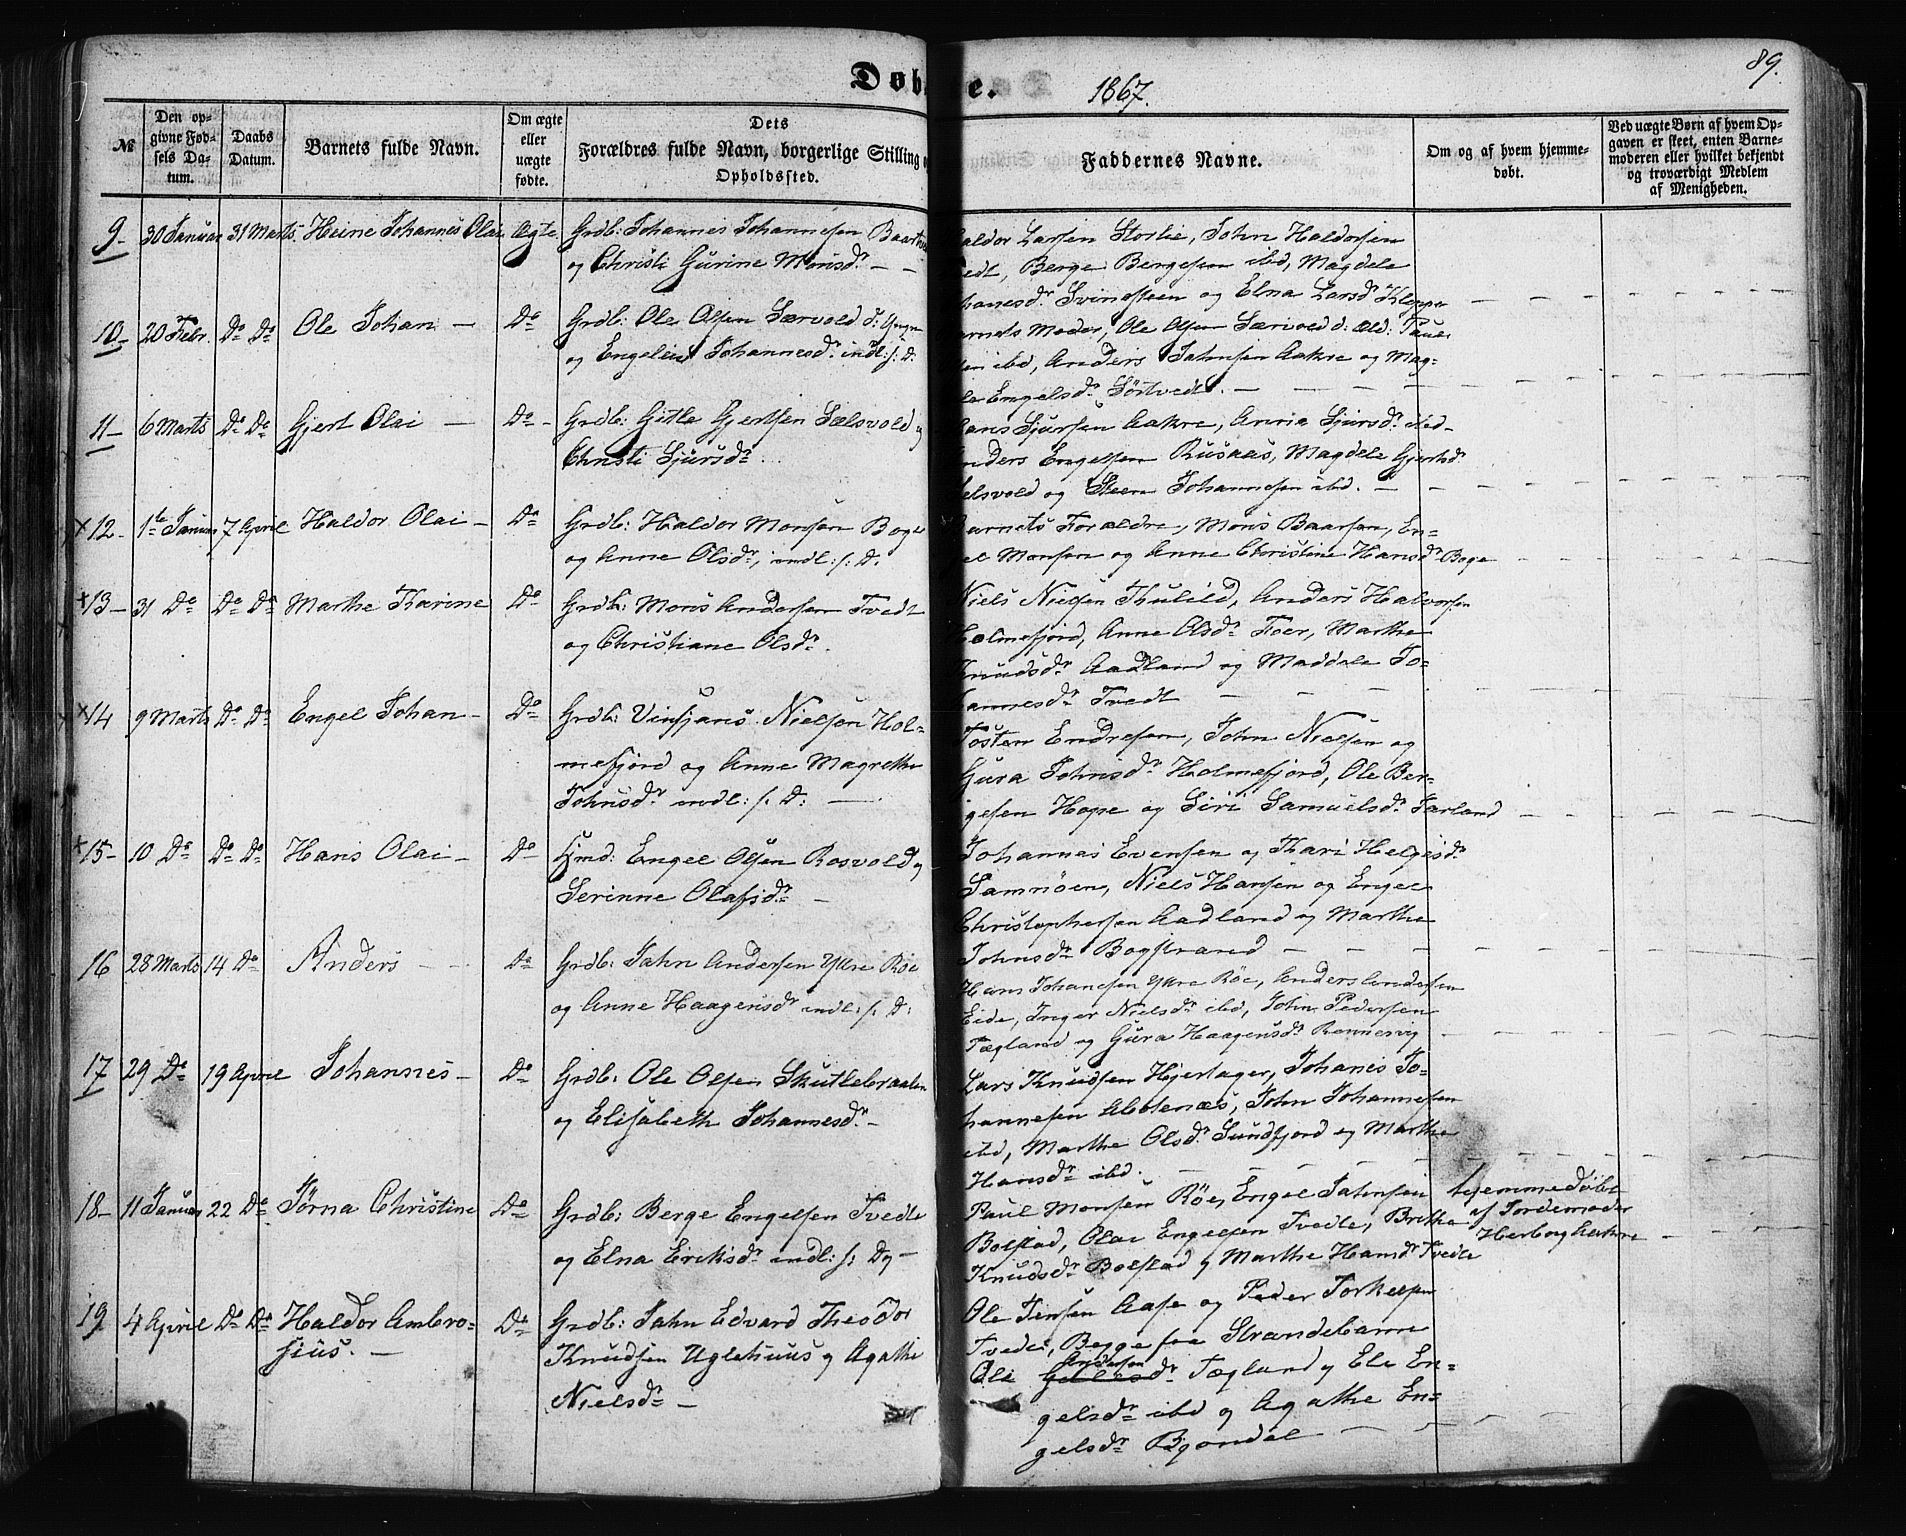 Døb e. 1867. 89.
№ | Den opgivne Fødsels Datum. | Daabs Datum. | Barnets fulde Navn. | Om ægte eller uægte fødte. | Dets Forældres fulde Navn, borgerlige Stilling Opholdssted. | Faddernes Navne. | Om og af hvem hjemmedøbt. | Ved uægte Børn af hvem Opgaven er skeet, enten Barnemoderen eller hvilket bekjendt og troværdigt Medlem af Menigheden.
9- 30 Januar 31 Marts Heine Johannes Olai Ægte Grdb: Johannes Johannesen
og Christi Gurine Monsdr — —
aldor Larsen Storlie, John Haldorsen
edt, Berge Bergesen ibd, Magdele
hanesdr Svindsteen og Elna Larsdr Kleppe
10- 20 Febr. Do Do Ole Johan — Do Grdb: Ole Olsen Særvold d: Yngre
og Engeline Johannesdr indl: f: D.
arnets Moder, Ole Olsen Særvold d: Æld:
ibd, Anders Jahnsen Aakre og Mag-
le Engelsdr Sørtvedt. —
11- 6 Marts Do Do Gjert Olai — Do- Grdb: Gitle Gjertsen Sælsvold og
Christi Sjursdr
ans Sjursen Aakre, Anna Sjursdr ibd-
nders Engelsen Rusaas, Magdele Gjertsdr
elsvold og Steen Johannesen ibd. —
x12- 1te Januar 7 April Haldor Olai — Do Grdb: Haldor Monsen Boge
og Anne Olsdr, indl: f: D.
Barnets Forældre, Mons Baarsen, En-
gel Monsen og Anne Christine Hansdr Boge
x13- 31 Do Do Do Marthe Karine Do Grdb: Mons Andersen Tvedt
og Christiane Olsdr.
Niels Nielsen Thuleld, Anders Halvorsen
Holmefjord, Anne Olsdr Foer, Marthe
Knudsdr Aadland og Maddele Jo-
hannesdr Tvedt
x14 9 Marts Do Do Engel Johan — Do Grdb: Vinsjans Nielsen Hol-
mefjord og Anne Magrethe
Johnsdr indl: f. D: —
Tosten Endresen, John Nielsen og
Gura Johnsdr Holmefjord, Ole Ber-
gesen Hope og Siri Samuelsdr Jarland
x15- 10 Do Do Do Hans Olai — Do Hmd: Engel Olsen Rosvold og
Serinne Olafsdr —
Johannes Evensen og Kari Helgesdr
Samnøen, Niels Hansen og Engel
Christophersen Aadland og Marthe
Johnsdr Bogstrand —
16 28 Marts 14 Do Anders — Do Grdb: Jahn Andersen Ytre Røe
og Anne Haagensdr indl: f. D:
Hans Johanesen Ytre Røe, Anders Andersen
Eide, Inger Nielsdr ibd, John Pedersen
Tægland og Gura Haagensdr Rennervig
17 29 Do 19 April Johannes — Do Grdb: Ole Olsen Skutlebraaten
og Elisabeth Johannesdr —
Lars Knudsen Hjertager, Johanes Jo-
hannesen Aldernæs, John Johannesen
ibd, Marthe Olsdr Sundfjord og Marthe
Hansdr ibd.
18- 11 Januar 22 Do Jørna Christine Do Grdb: Berge Engelsen Tvedte
og Elna Eriksdr indl: f: Dg —
Paul Monsen Røe, Engel Jahnsen
Bolstad, Olai Engelsen Tvedte, Brithe
Knudsdr Bolstad og Marthe Hansdr Tvedte
hjemmedøbt
af Jordemoder
Herborg Aakre
19 4 April Do Do Haldor Ambro- Do Grdb: Jahn Edvard Theodor
sius. —
Knudsen Ugletuus og Agathe
Nielsdr —
Ole Jensen Aase og Peder Torkelsen
Tvedt, Berge fra Strandebarm
Oli Andersen Tægland og Ele En-
gelsdr ibd og Agathe En-
gelsdr Bjøndal —